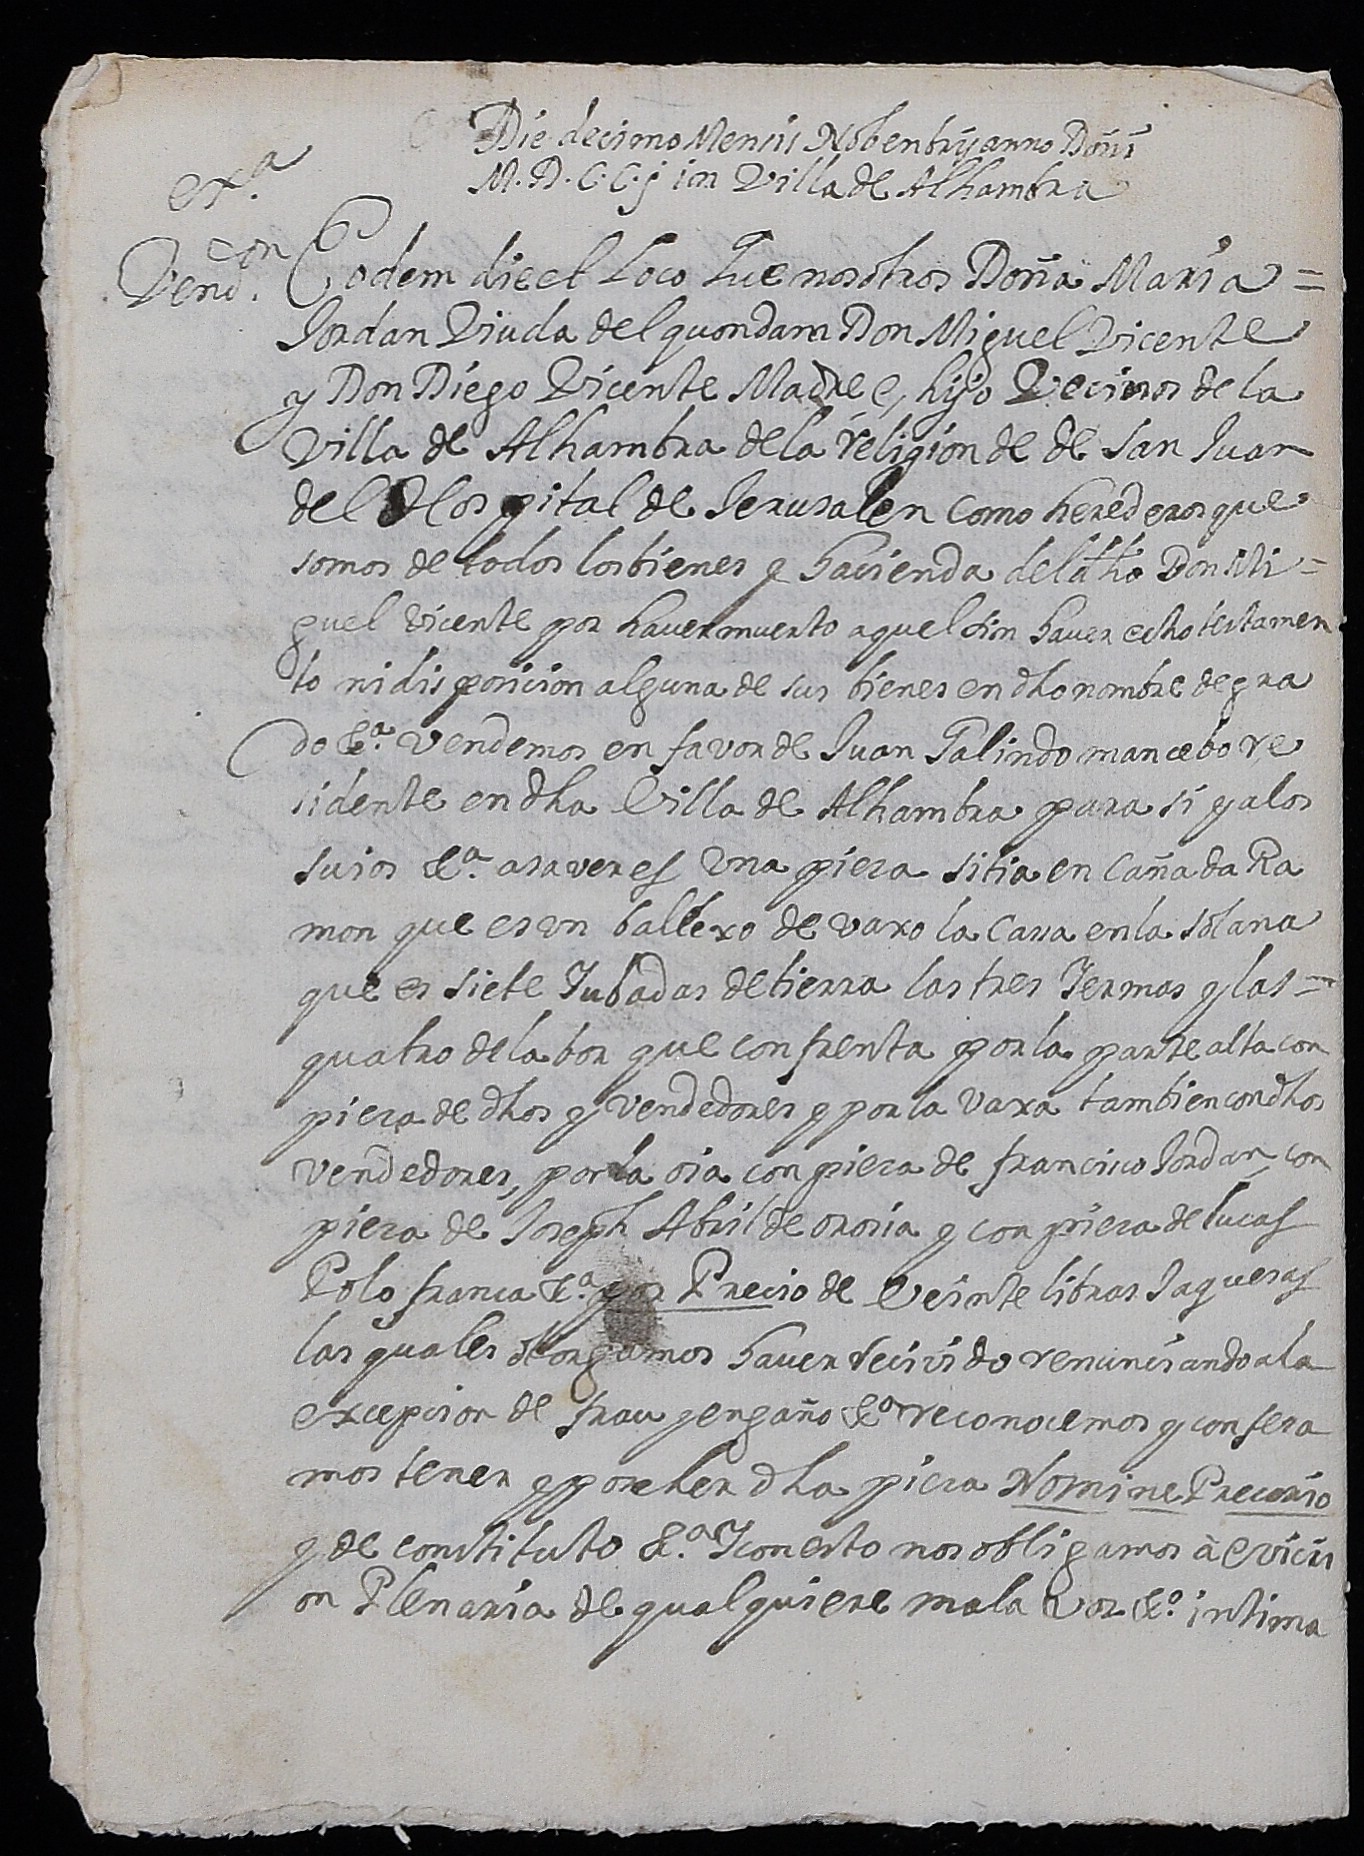 Die decimo Mensis Nobenbrij anno Doñi
M.D.C.C.j in Villa de Alhambra
exª.
Vendcon.
Eodem die et Loco Que nosotros Doña Maria =
Jordan Viuda del quondam Don Miguel Vicente
y Don Diego Vicente Madre e, hijo Vecinos de la
Villa de Alhambra de la religion de de San Juan
del Hospital de Jerusalen como herederos que
somos de todos los bienes y hacienda del dho Don Mi =
guel Vicente por haver muerto aquel sin haver echo testamen
to ni disposicion alguna de sus bienes en dho nombre de gra
do &ª. vendemos en favor de Juan Galindo mancebo re
sidente en dha Villa de Alhambra para si y a los
suios &ª. asaver es Una pieza sitia en Cañada Ra
mon que es un ballexo de vaxo la Cassa en la solana
que es siete Jubadas de tierra las tres Jermas y las =
quatro de labor que confrenta por la parte alta con
pieza de dhos y vendedores y por la vaxa tambien con dhos
vendedores, por la oia con pieza de francisco Jordan, con
pieza de Joseph Abril de orosia y con pieza de lucas
Polo franca &ª por Precio de Veinte libras Jaquesas
las quales otorgamos haver recivido renunciando a la
excepcion de frau y engaño &ª reconocemos y confesa
mos tener y poseher dha pieza Nomine Precario
y de constituto &ª. Y con esto nos obligamos à evicsi
on Plenaria de qualquiere mala voz &ª. intima